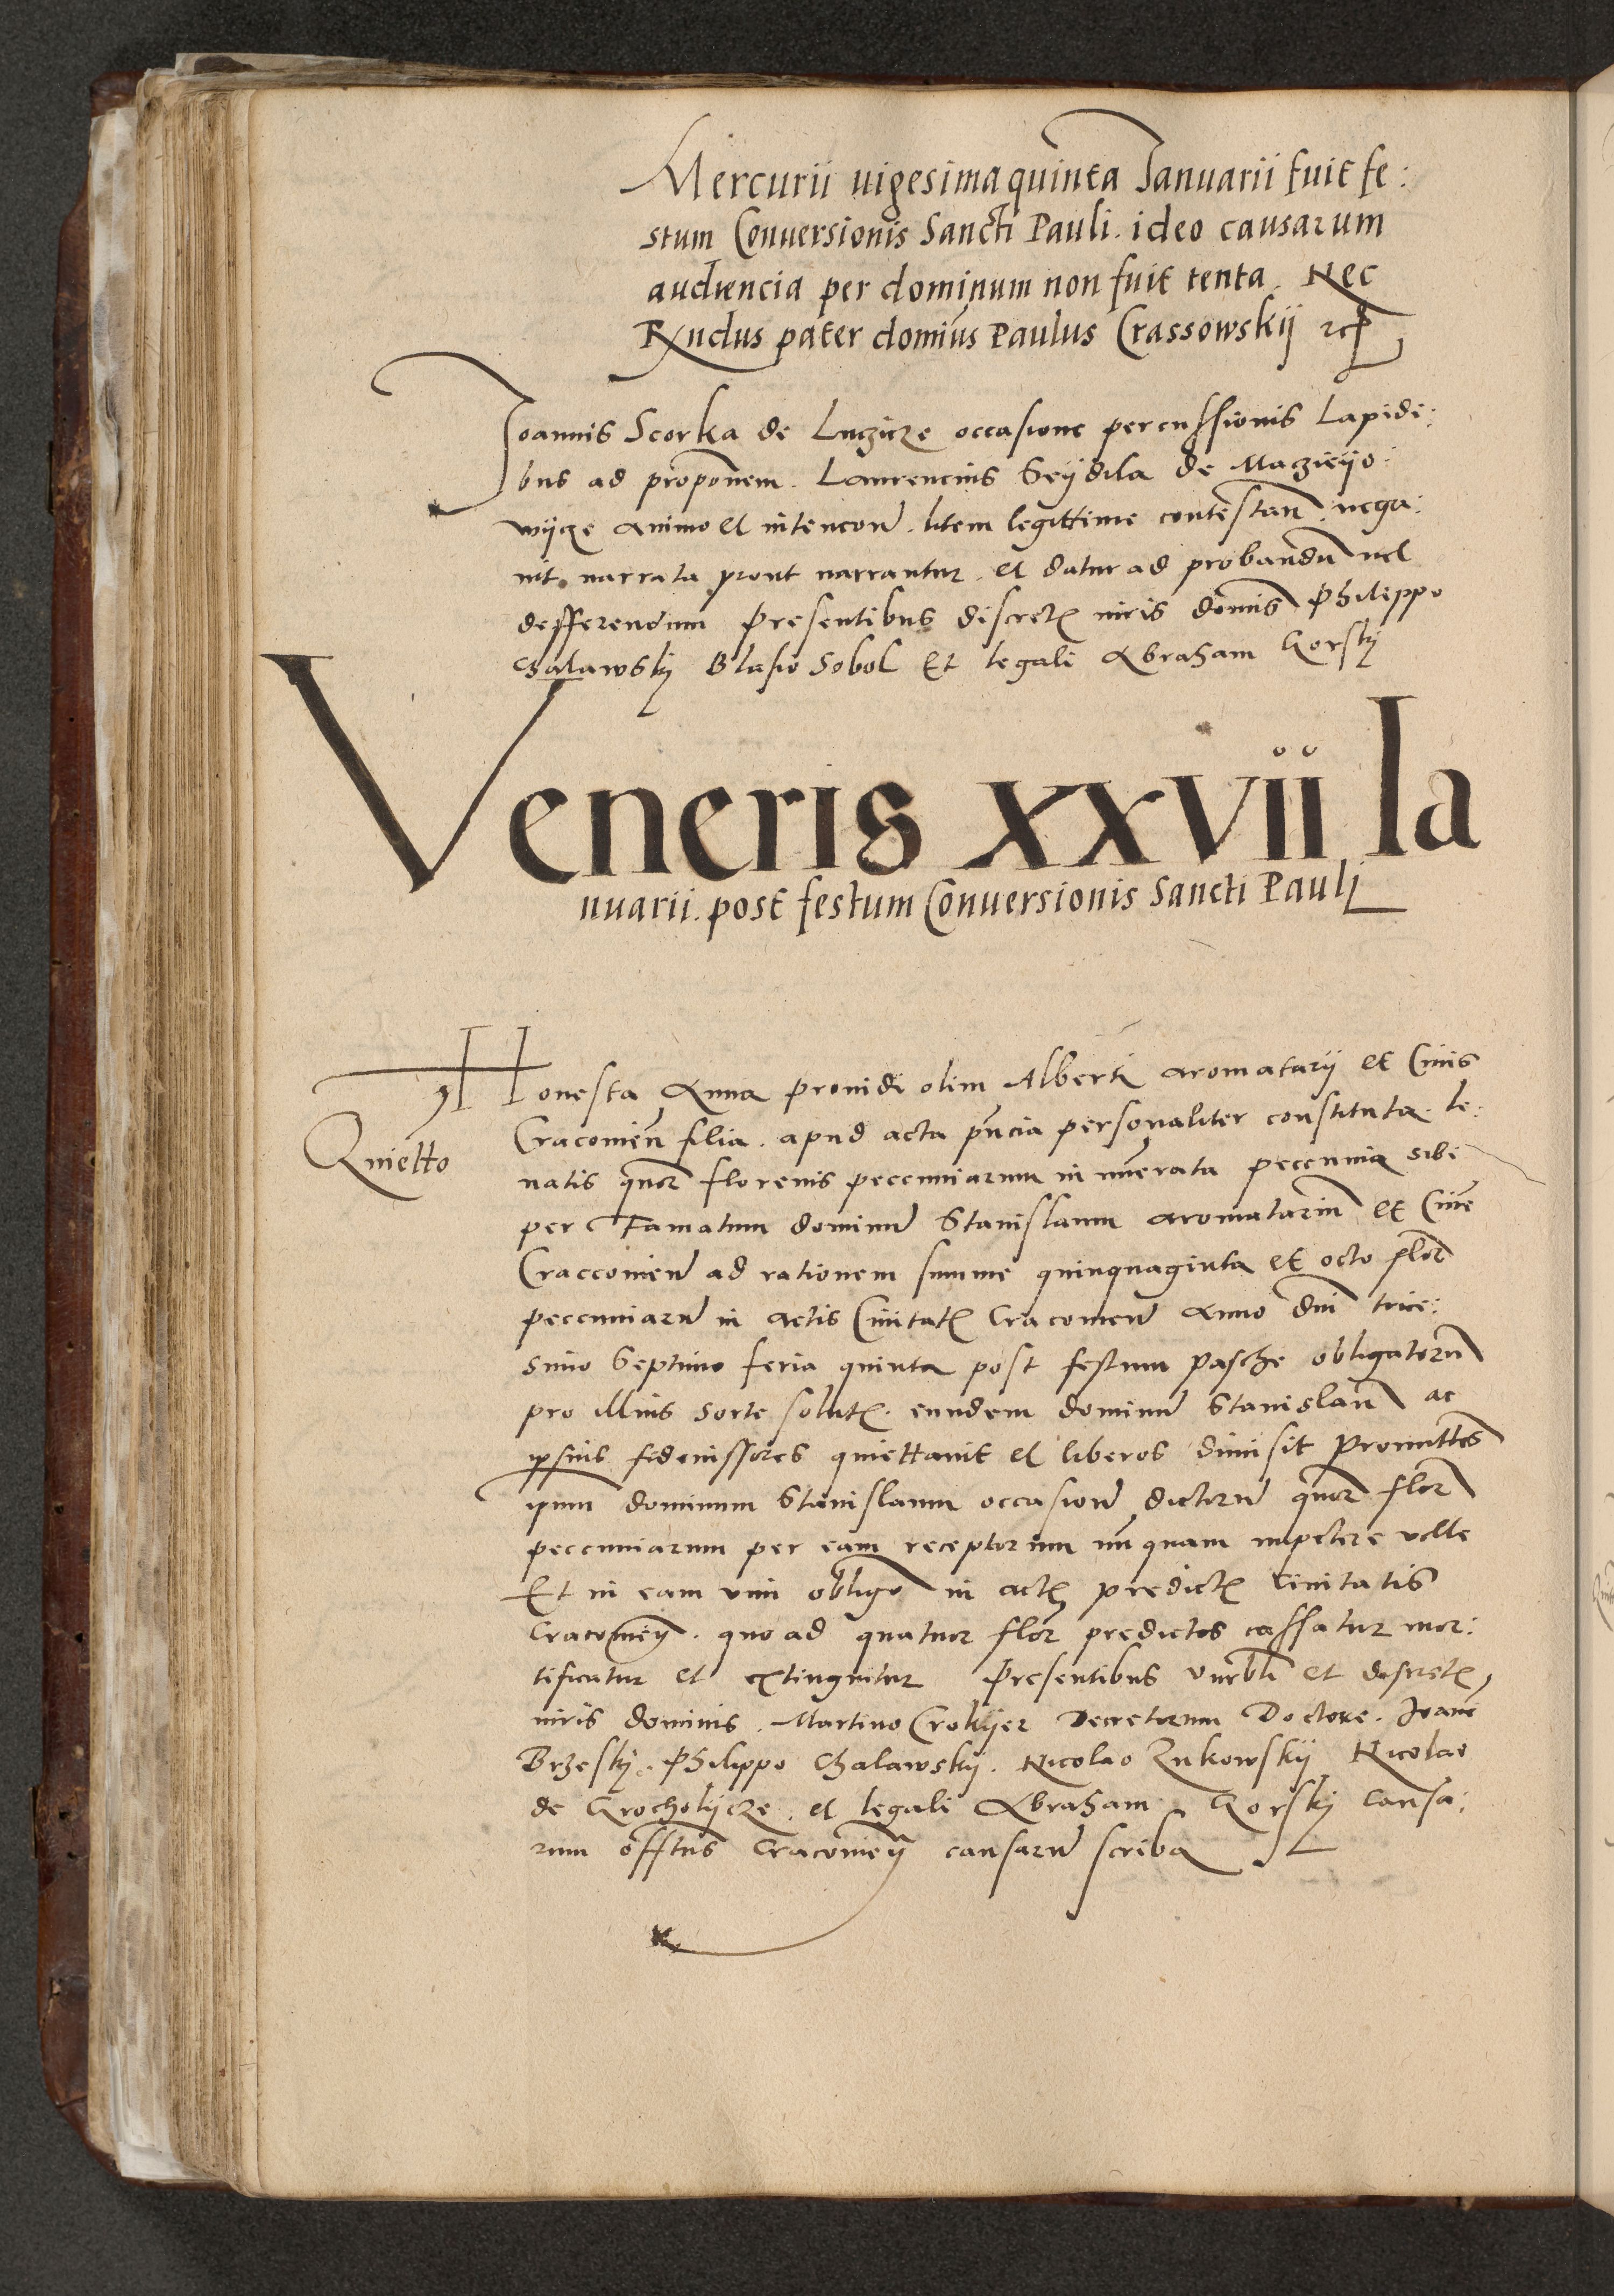 Mercurii uigesima quinta Ianuarii fuit fe:
stum Conuersionis Sancti Pauli. ideo causarum
audiencia per dominum non fuit tenta. Nec
Rndus pater dominus Paulus Crassowskij
Ioannis Scorka de Luczicze occasione percussionis Lapidi:
bus ad proponem. Laurencius Seijdila de Maczieijo:
wijcze animo et intencon litem legittime contestan nega:
uit narrata prout narrantur. et datur ad probandu uel
defferendum Presentibus discret uiris domis Philippo
Chalawskij Blasio Sobol Et legali Abraham Gorskij
Veneris xxvii Ia
nuarii. post festum Conuersionis Sancti Pauli
Honesta Anna prouidi olim Alberti aromatarij et Ciuis
Quietto
Cracouien filia. apud acta pncia personaliter constituta. le:
uatis quor florenis peccuniarum in numerata peccunia sibi
per Famatum dominu Stanislaum aromatarium et Ciue
Craccouien ad rationem summe quinquaginta et octo flor
peccuniaru in actis Ciuitat Cracouien Anno dni trice:
simo Septimo feria quinta post festum Pasche obligatoru
pro illius sorte solut. eundem dominu Stanislau ac
ipsius fideiussores quiettauit et liberos dimisit Promittes
ipum dominum Stanislaum occasione dictoru quor flor
peccuniarum per eam receptorum nunquam impetere velle
Et in eam vim obligo in act predict Ciuitatis
Cracouien. quo ad quatuor flor predictos cassatur mor:
tificatur et extinguitur Presentibus Vnerbli et discret
uiris dominis. Martino Crokijer Decretorum Doctore. Ioane
Brzeskij. Philippo Chalawskij. Nicolao Zukowskij Nicolao
de Grocholijcze. et legali Abraham Gorskij Causa:
rum offtus Cracouien causaru scriba